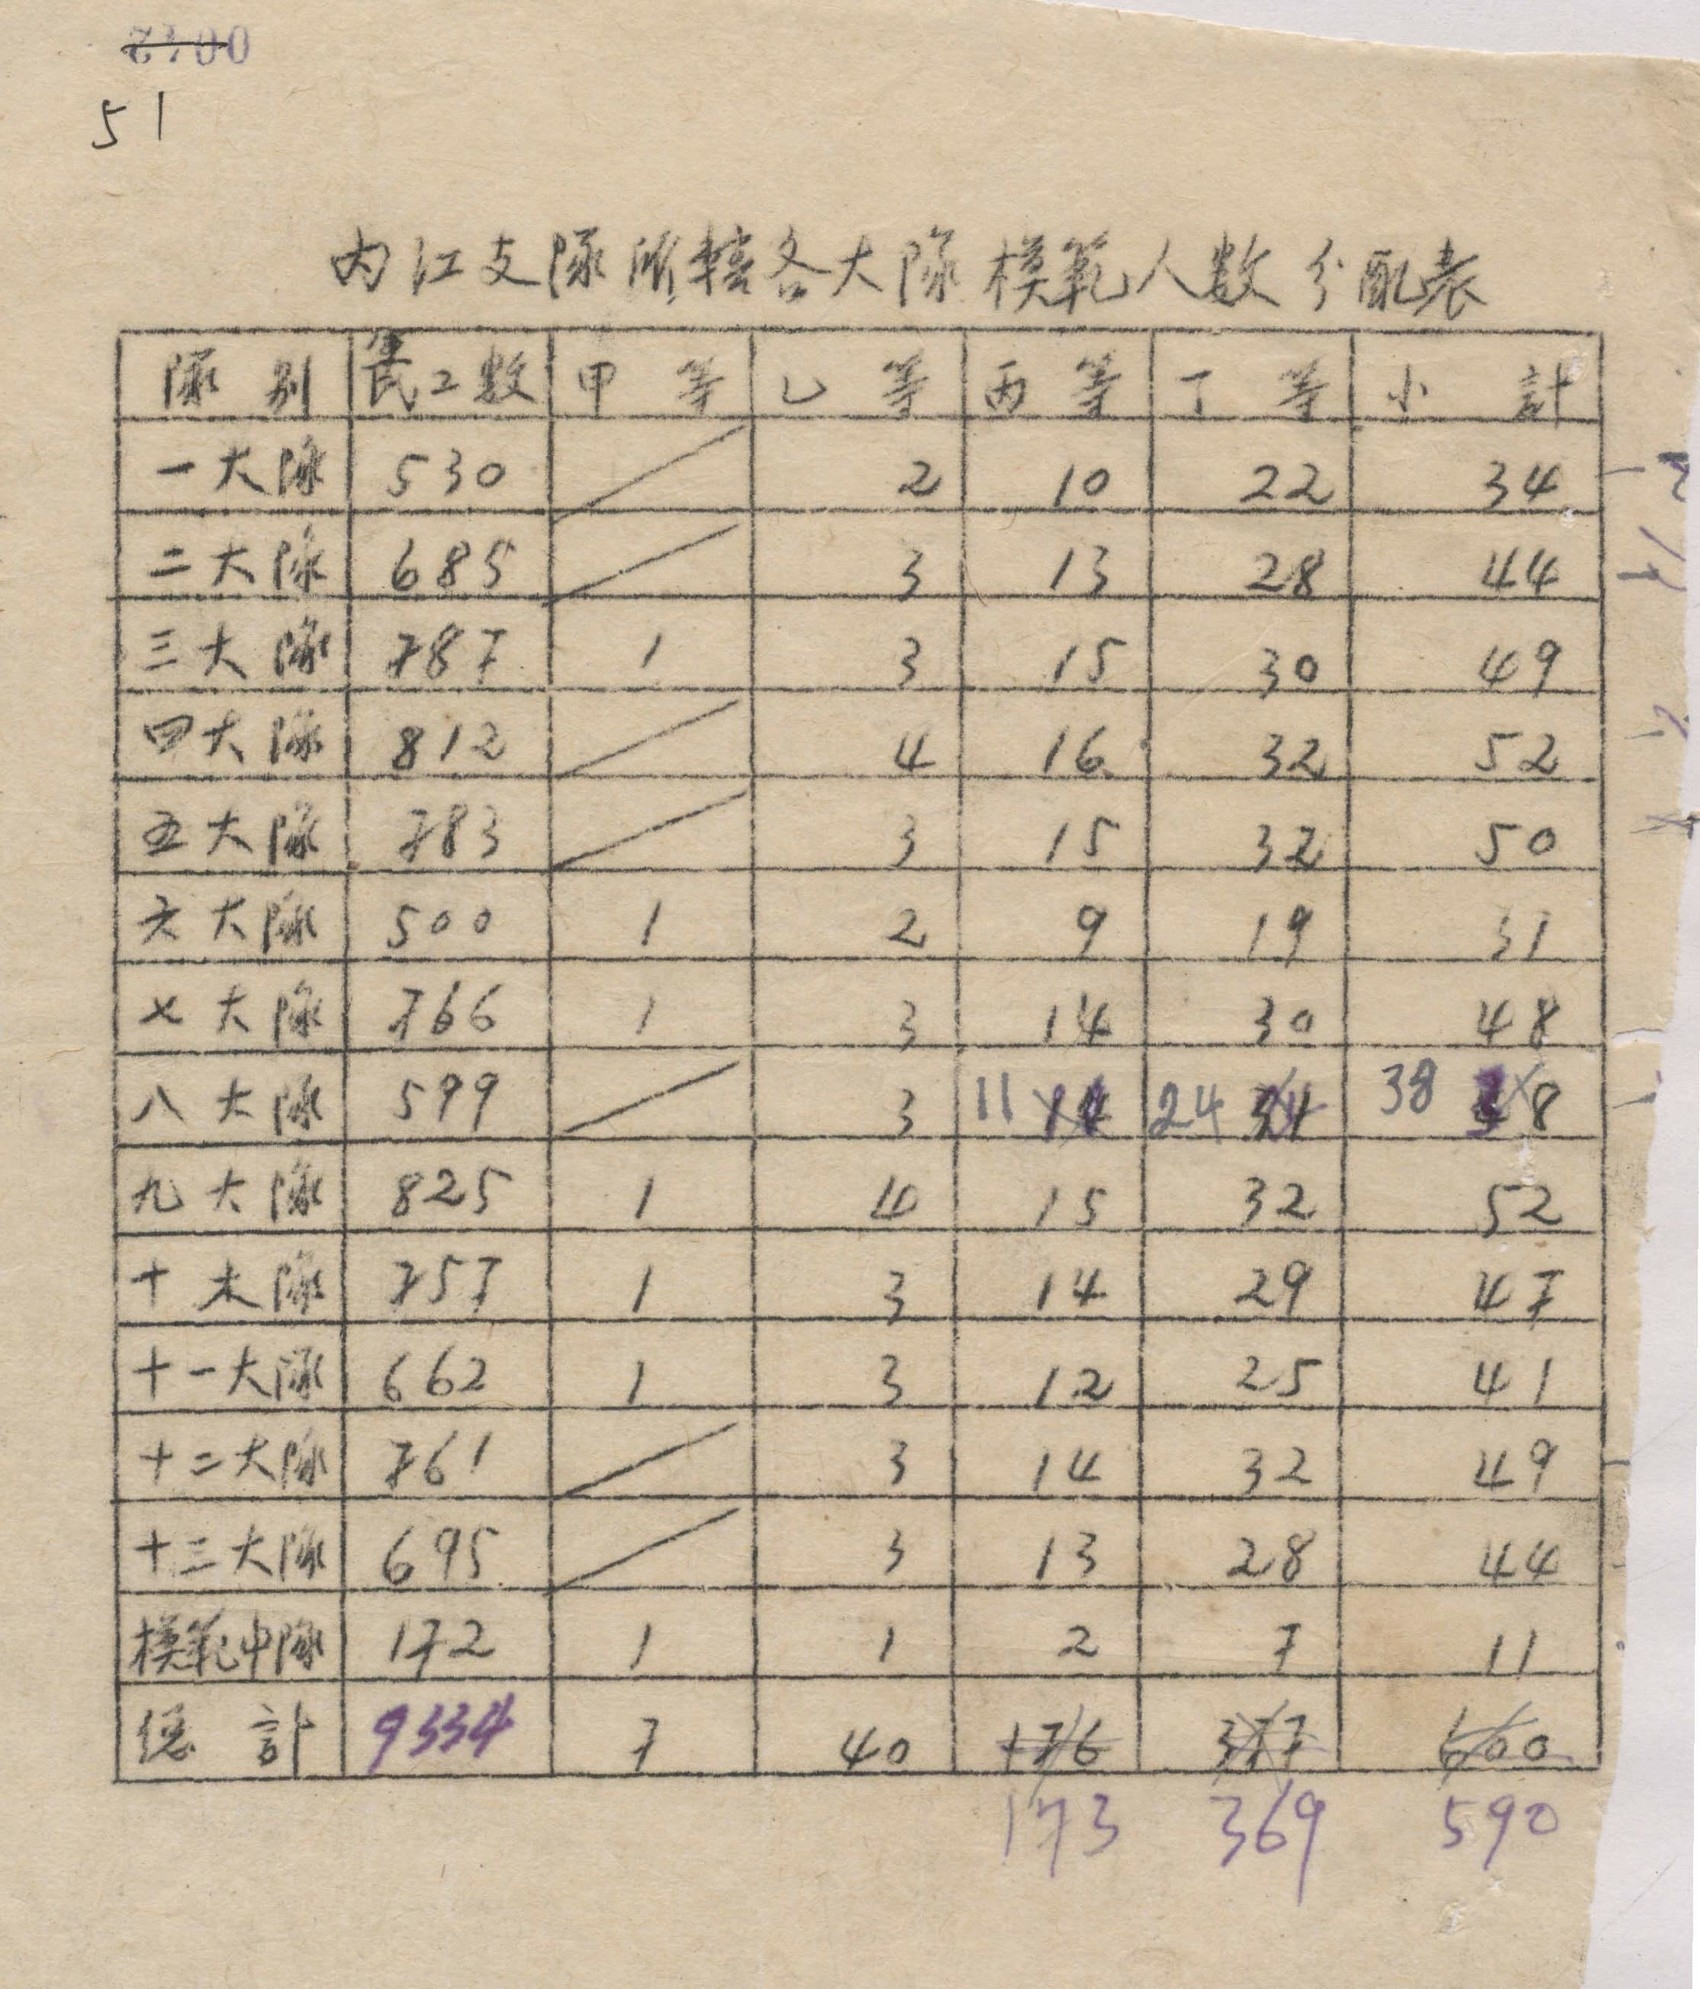 51
内江支隊所轄各大隊模範人数分配表
隊別 民工數 甲等 乙等 丙等 丁等 小計
一大隊 530 2 10 22 34
二大隊 685 3 13 28 44
三大隊 787 1 3 15 30 49
四大隊 812 4 16 32 52
五大隊 783 3 15 32 50
六大隊 500 1 2 9 19 31
七大隊 766 1 3 14 30 48
八大隊 599 3 11 14 24 31 38 48
九大隊 825 1 4 15 32 52
十大隊 757 1 3 14 29 47
十一大隊 662 1 3 12 25 41
十二大隊 761 3 14 32 49
十三大隊 695 3 13 28 44
模範中隊 172 1 1 2 7 11
總計 9334 7 40 176 377 600
173 369 590